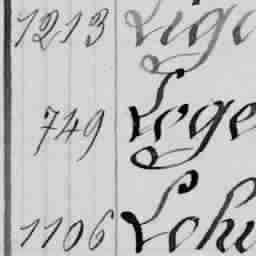 1213 Liga
749 Loge
1106 Lohu